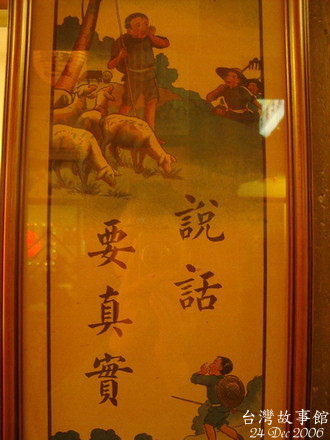 說話
要真實
台灣故事館
24 Dec 2006